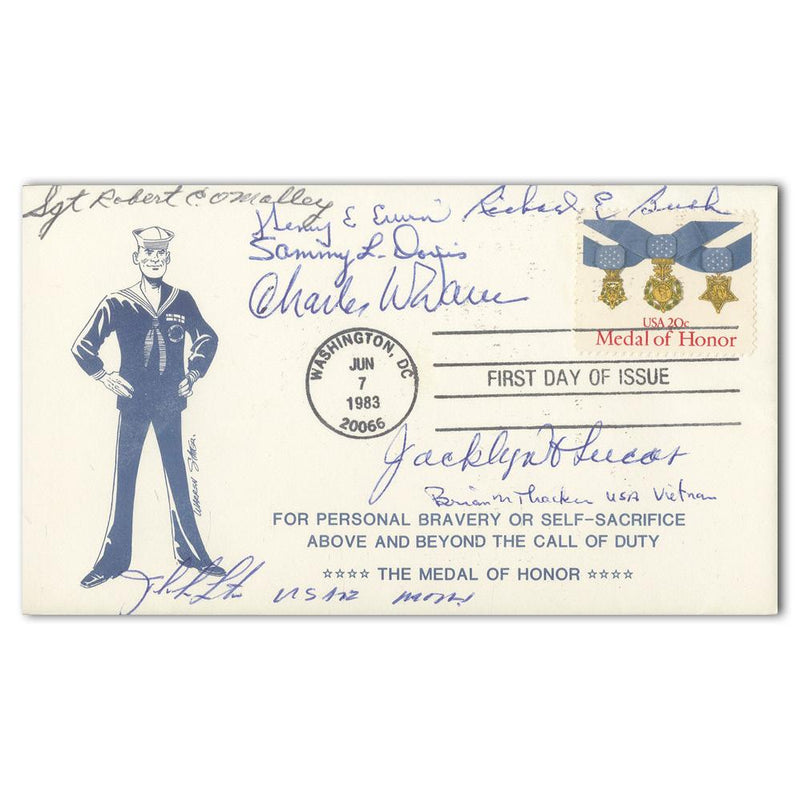 Sgt Robert E O'Malley
Henry E Erwin Richard E Bush
Sammy L. Davis
Charles W Dann
USA 20c
Medal of Honor
WASHINGTON, DC
JUN
7
1983
20066
FIRST DAY OF ISSUE
Jacklyn H Lucas
Brian M Thacker USA Vietnam
FOR PERSONAL BRAVERY OR SELF-SACRIFICE
ABOVE AND BEYOND THE CALL OF DUTY
☆☆☆☆ THE MEDAL OF HONOR ☆☆☆☆